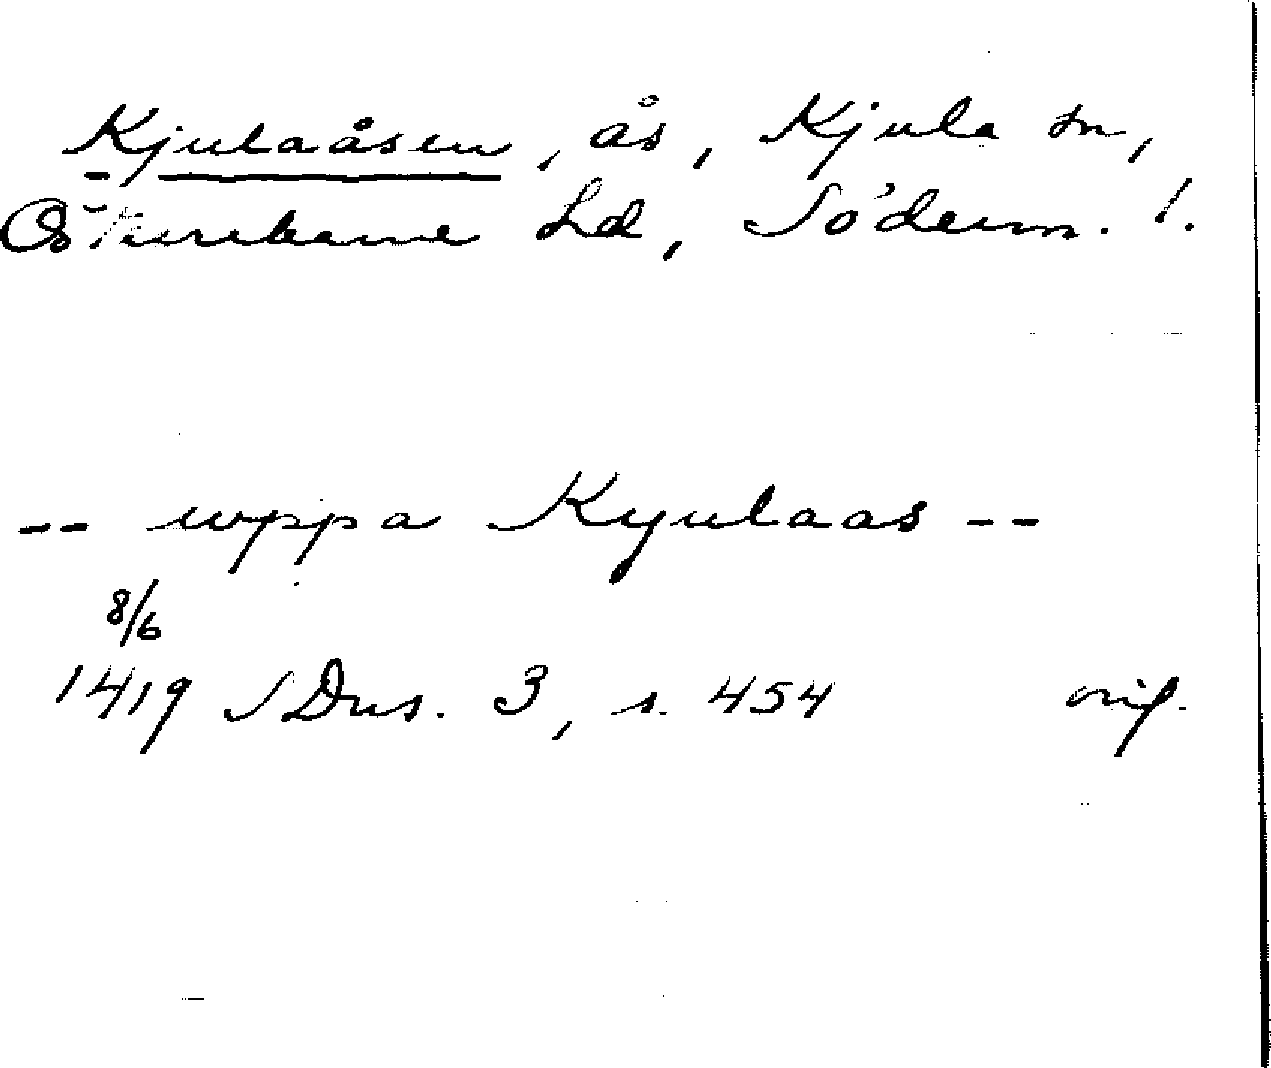 Kjulaåsen, ås, Kjula sn,
Österrekarne hd, Söderm. l.
-- wppa Kyulaas --
8/6
1419 SDns. 3, s. 454 orig.